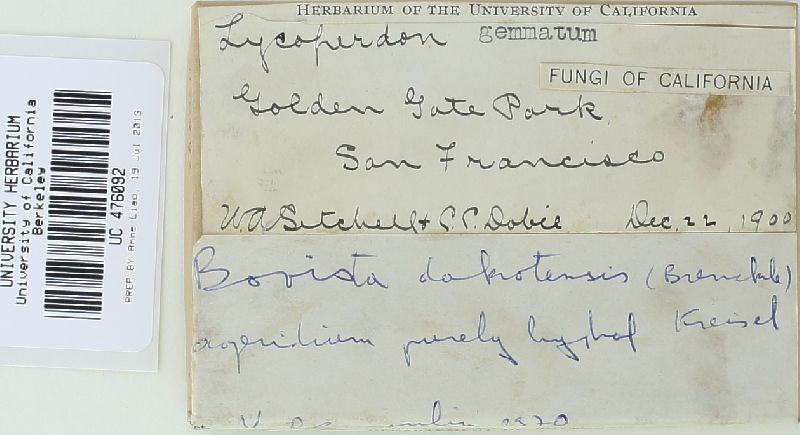 UNIVERSITY HERBARIUM
University of California
Berkeley
UC 476092
PREP BY Anne Liao, 19 Jul 2013
HERBARIUM OF THE UNIVERSITY OF CALIFORNIA
Lycoperdon gemmatum
FUNGI OF CALIFORNIA
Golden Gate Park
San Francisco
W.A. Setchell & C.C. Dobie Dec. 22, 1900
Bovista dakotensis (Brenckle)
purely Kreisel